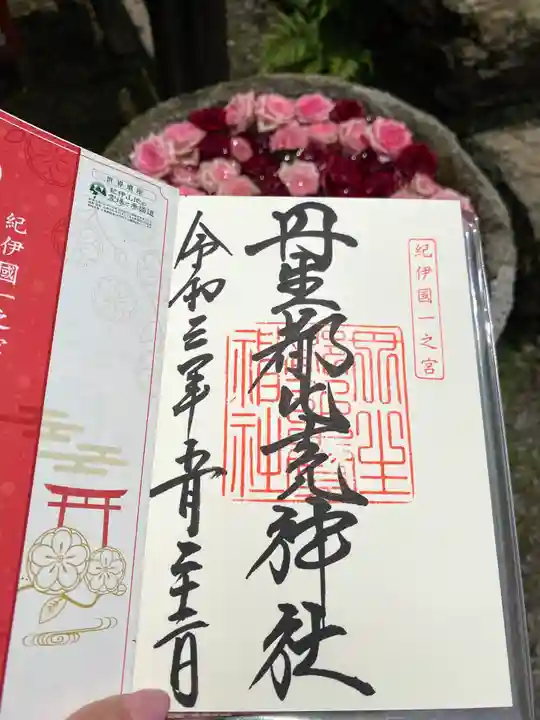 紀伊國一之宮
丹生都比売神社
令和三年五月二十二日
世界遺産
紀伊山地の
霊場と参詣道
紀伊國一之宮